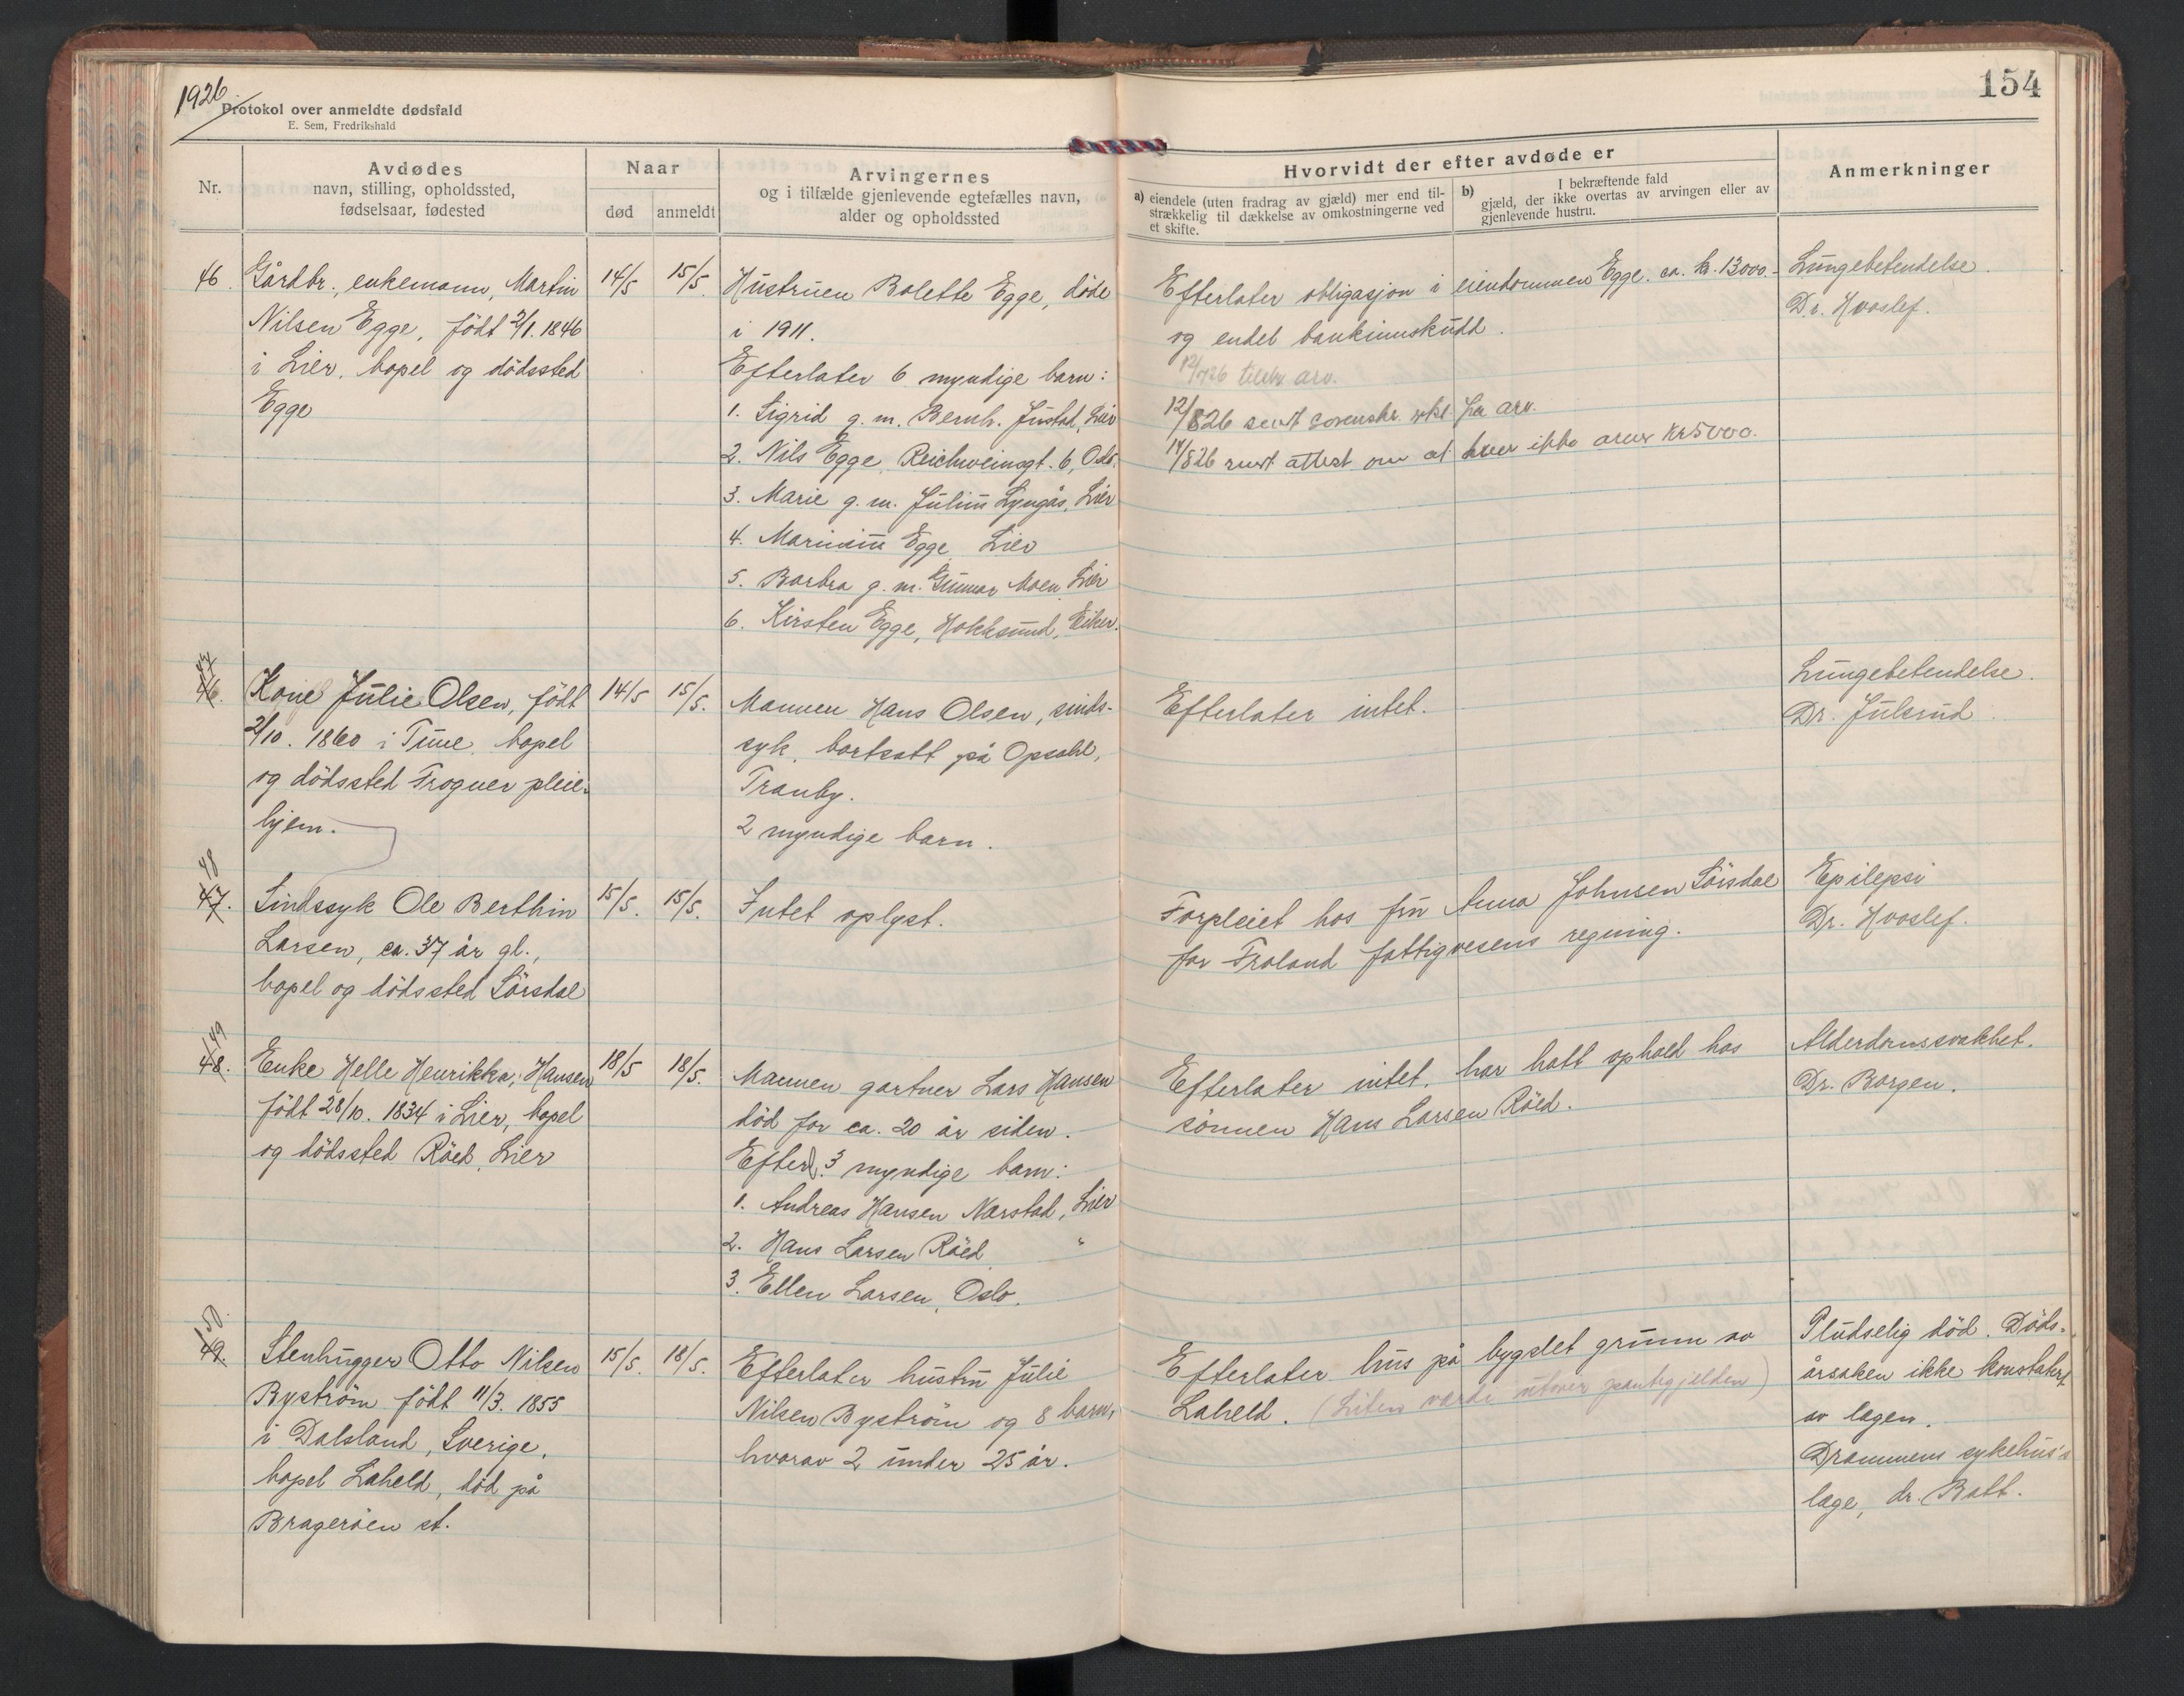 1926
Protokol over anmeldte dødsfald
E. Sem, Fredrikshald
154
Nr.
Avdødes
navn, stilling, opholdssted,
fødselsaar, fødested
Naar
død
anmeldt
Arvingernes
og i tilfælde gjenlevende egtefælles navn,
alder og opholdssted
Hvorvidt der efter avdøde er
a) eiendele (uten fradrag av gjæld) mer end til-
strækkelig til dækkelse av omkostningerne ved
et skifte.
b) I bekræftende fald
gjæld, der ikke overtas av arvingen eller av
gjenlevende hustru.
Anmerkninger
46.
Gårdbr., enkemann, Martin
Nilsen Egge, födt 2/1. 1846
i Lier, bopel og dödssted
Egge
14/5
15/5.
Hustruen Bolette Egge, döde
i 1911.
Efterlater 6 myndige barn:
1. Sigrid g. m. Bernh. Justad, Lier
2. Nils Egge, Reichweinsgt. 6, Oslo.
3. Marie g. m. Julius Lyngås, Lier
4. Marinius Egge, Lier
5. Barbra g. m. Gunnar Moen, Lier
6. Kirsten Egge, Hokksund, Eiker.
Efterlater obligasjon i eiendommen Egge. ca. kr. 13000.-
og endel bankinnskudd.
12/726 arv.
12/826 sendt sorenskr. for arv.
14/826 sendt attest om at hver ikke arver kr 5000.
Lungebetendelse.
Dr. Hvoslef.
46. 47
Kone Julie Olsen, födt
2/10. 1860 i Tune, bopel
og dödssted Frogner pleie-
hjem.
14/5
15/5.
Mannen Hans Olsen, sinds-
syk, bortsatt på Opsahl,
Tranby.
2 myndige barn.
Efterlater intet.
Lungebetendelse.
Dr. Julsrud.
47. 48
Sindssyk Ole Berthin
Larsen, ca. 37 år gl.,
bopel og dödssted Sörsdal
15/5.
15/5.
Intet oplyst.
Forpleiet hos fru Anna Johnsen Sörsdal
for Froland fattigvesens regning.
Epilepsi
Dr. Hvoslef.
48. 49
Enke Helle Henrikka, Hansen
födt 28/10. 1834 i Lier, bopel
og dödssted Röed, Lier
18/5
18/5.
Mannen gartner Lars Hansen
död for ca. 20 år siden.
Efterl. 3 myndige barn:
1. Andreas Hansen Narstad, Lier
2. Hans Larsen Röed "
3. Ellen Larsen, Oslo.
Efterlater intet, har hatt ophold hos
sönnen Hans Larsen Röed.
Alderdomssvakhet.
Dr. Borgen.
49. 50.
Stenhugger Otto Nilsen
Byström födt 11/3. 1855
i Dalsland, Sverige,
bopel Laheld, död på
Brageröen st.
15/5.
18/5.
Efterlater hustru Julie
Nilsen Byström og 8 barn,
hvorav 2 under 25 år.
Efterlater hus på bygslet grunn av
Laheld. (Liten verdi utover pantegjelden)
Pludselig död. Döds-
årsaken ikke konstatert
av lægen.
Drammens sykehus's
læge, dr. Batt.